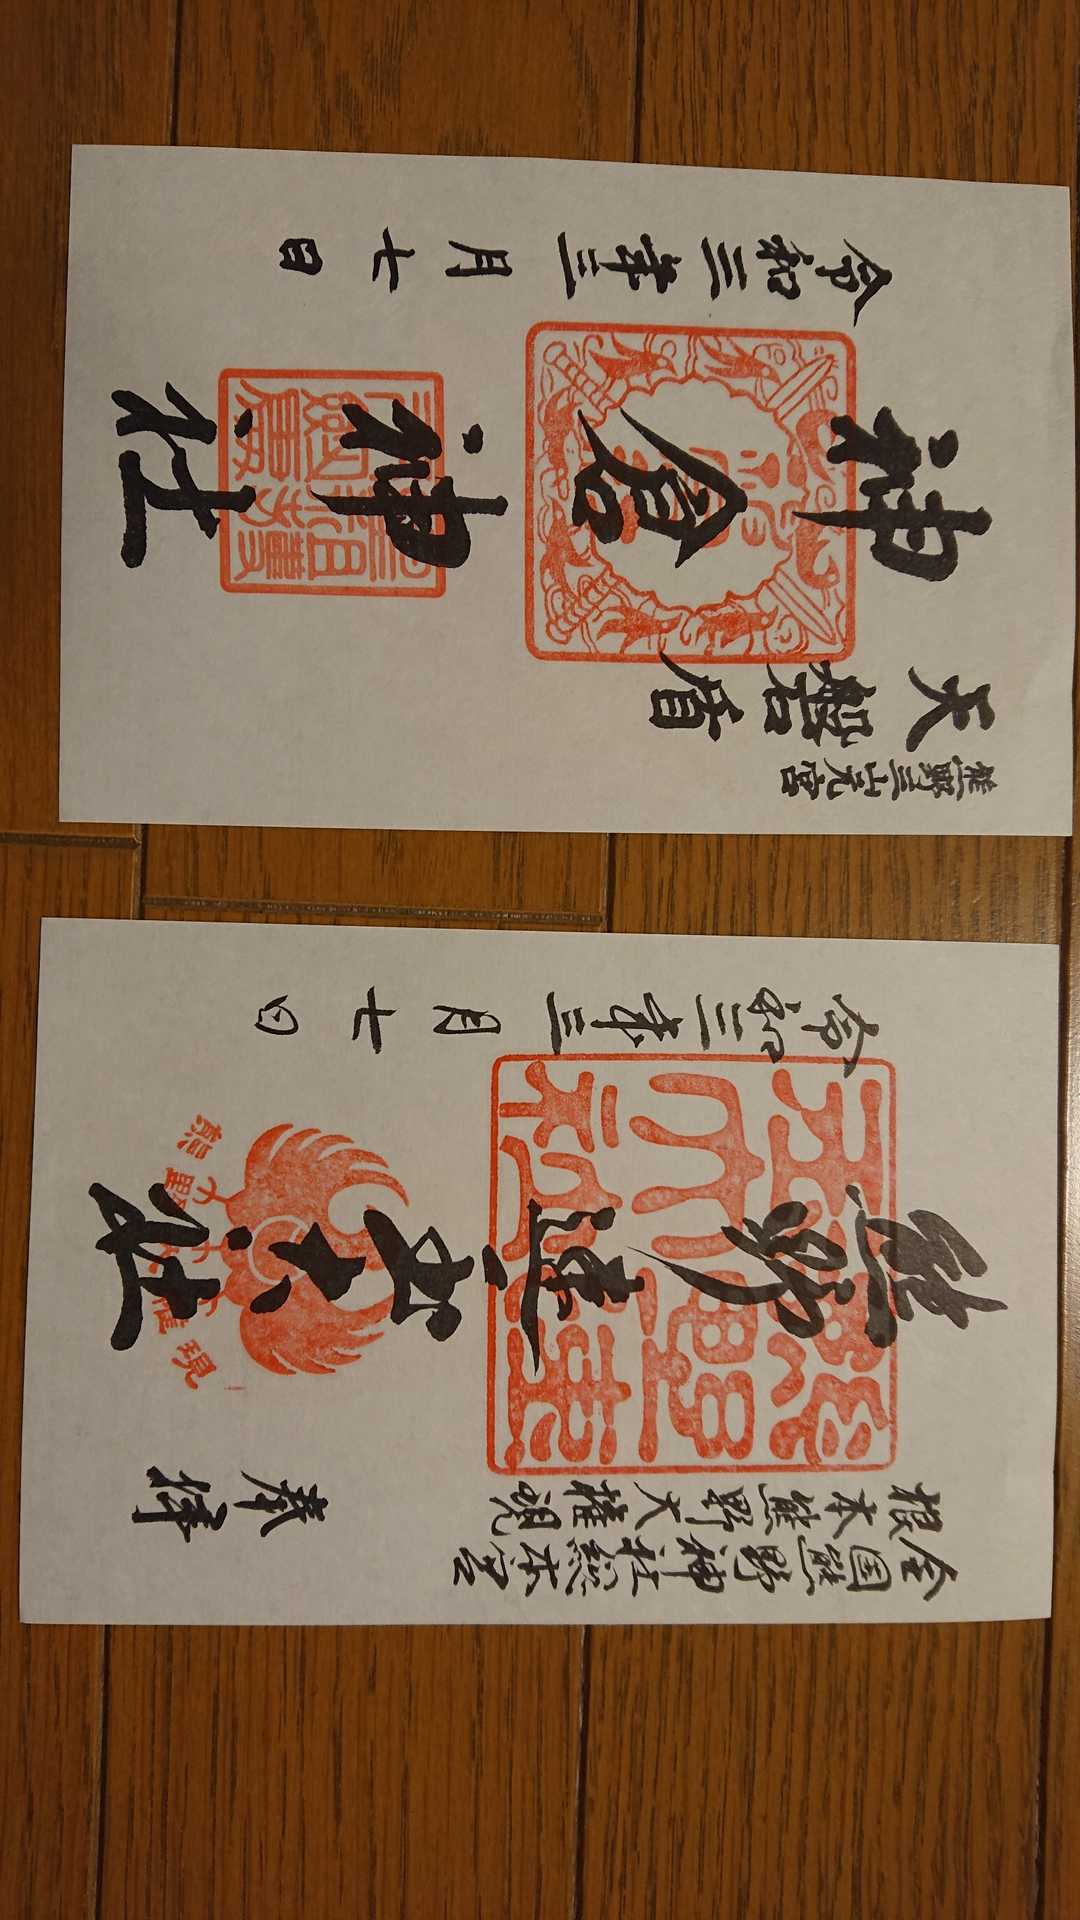 全国熊野神社総本宮
根本熊野大権現
奉拝
熊野速玉大社
令和三年三月七日
熊野三山元宮
天磐盾
神倉神社
令和三年三月七日